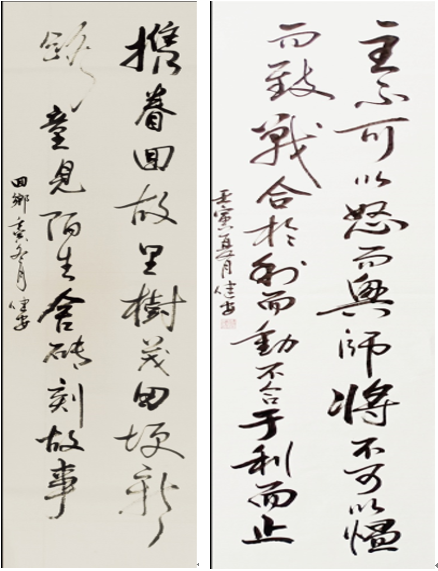 携眷回故里樹茂田埂新
童見陌生舍磚刻故事
回鄉 冬月 健安
主不可以怒而興師將不可以慍
而致戰合於利而動不合于利而止
壬寅夏月健安